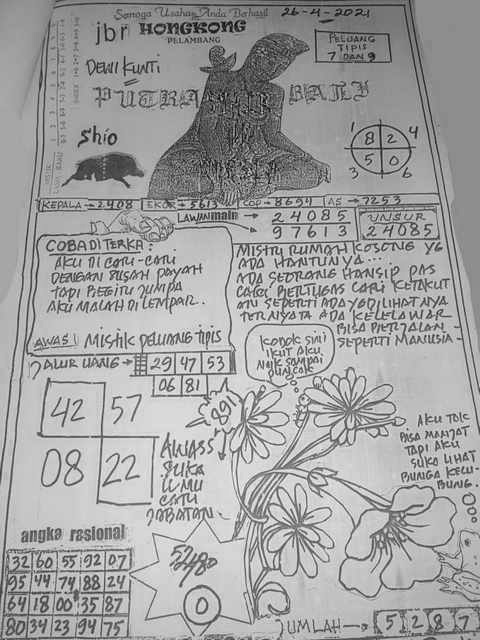 Semoga Usaha Anda Berhasil
26-4-2021
jbr HONGKONG
PELAMBANG
PELUANG
TIPIS
7 DAN 9
DEWI KUNTI
PUTRA
BALI
Shio
1 8 2 4
3 5 0 6
KEPALA→2408 EKOR→5613 COP→8694 AS→7253
LAWAN main → 24085
97613
UNSUR
24085
COBA DITERKA:
AKU DI CARI-CARI
DENGAN SUSAH PAYAH
TAPI BEGITU JUMPA
AKU MALAH DI LEMPAR.
MISTRI RUMAH KOSONG YG
ADA HANTUNYA...
ADA SEORANG HANSIP DAS
CARI BERTUGAS CARI KETAKUT
AN SEPERTI ADA YG DILIHATNYA
TERNYATA ADA KELELAWAR
BISA BERJALAN
SEPERTI MANUSIA-
AWAS! MISTIK PELUANG TIPIS
JALUR UANG→ 29 47 53
06 81
KODOK SINI
IKUT AKU
NAIK SAMPAI
PUNCAK
42 57
08 22
891
AWASS
SUKA
ILMU
CARI
JABATAN-
AKU TAK
BISA MANJAT
TAPI AKU
SUKA LIHAT
BUNGA KECU-
BUNG.
angka rasional
32 60 55 92 07
95 44 74 88 24
64 18 00 35 87
80 34 23 94 75
52480
0
JUMLAH→ 5 2 8 7